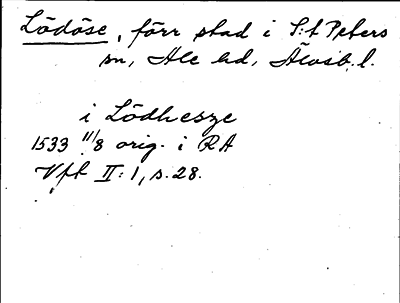 Lödöse, förr stad i S:t Peters
sn, Ale hd, Älvsb. l.
i Lödhesze
1533 11/8 orig. i RA
Vft II: 1, s. 28.